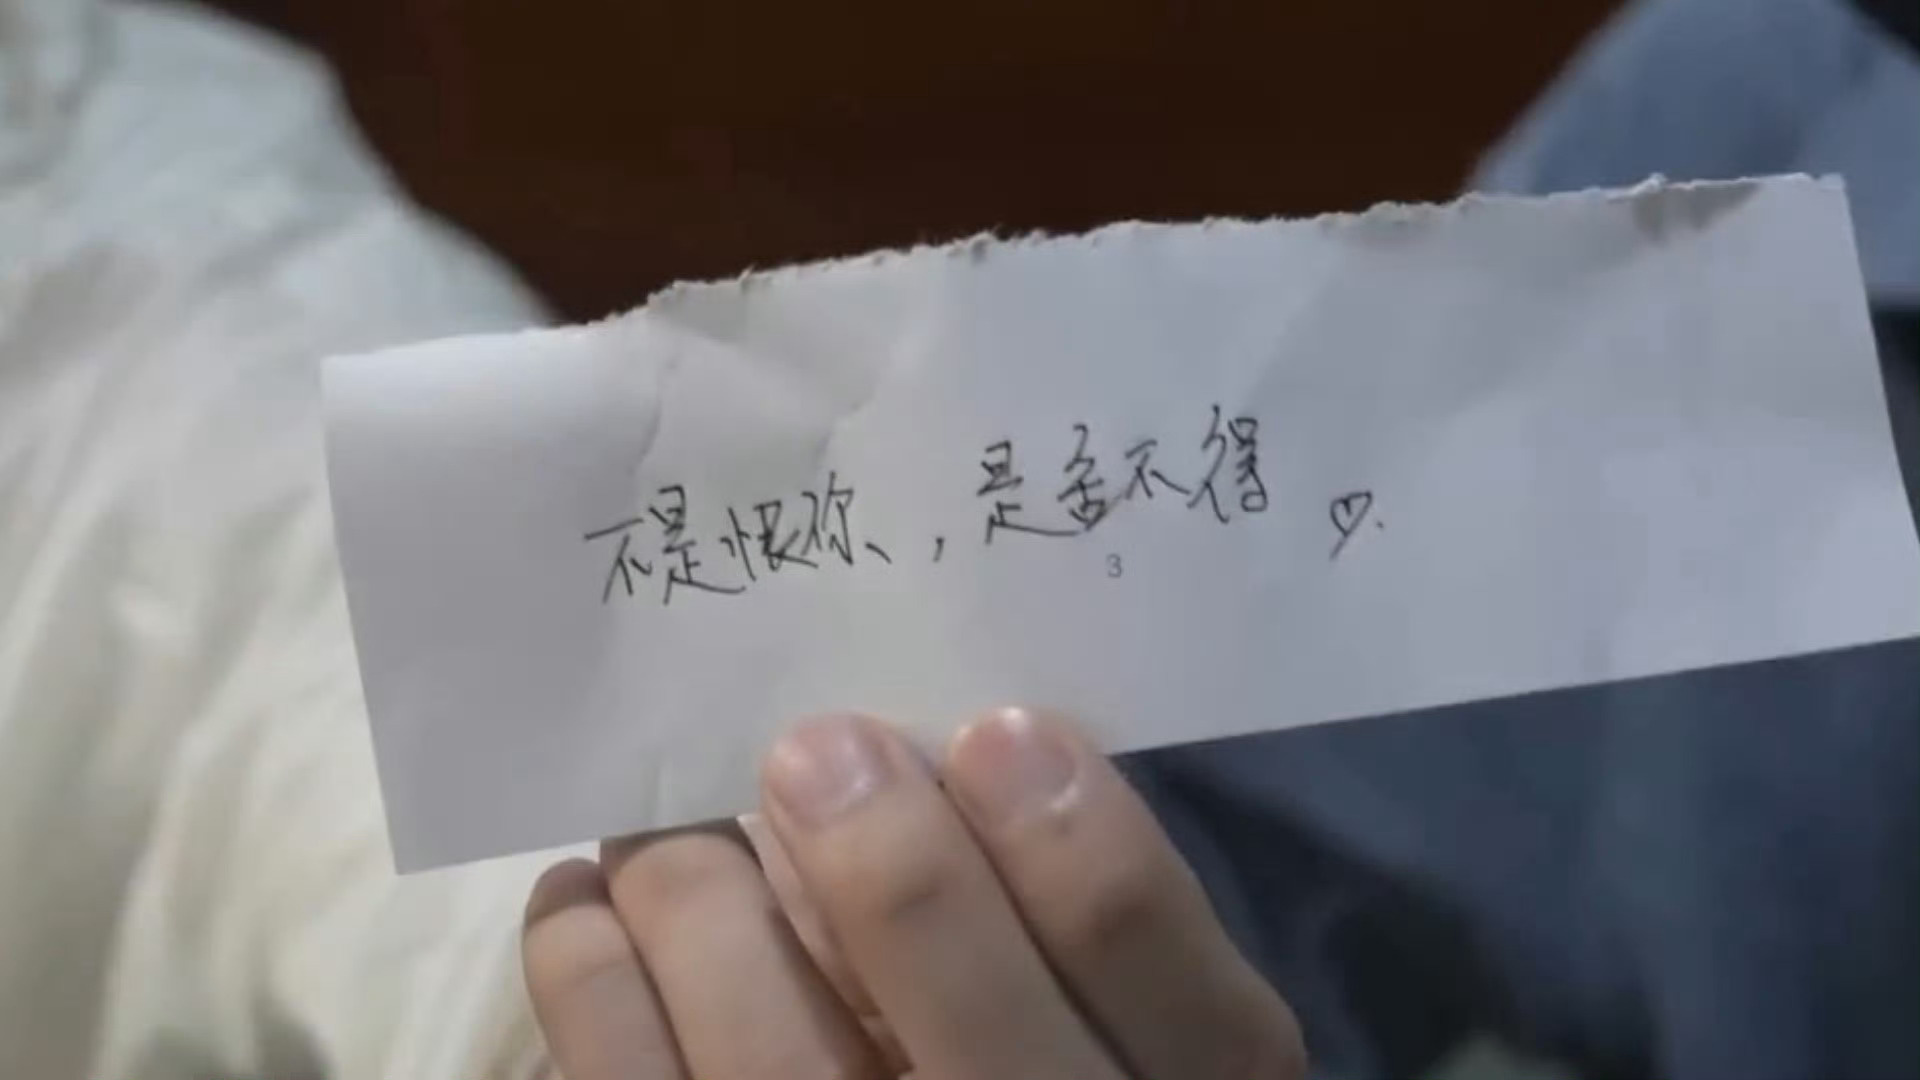 不是恨你，是舍不得♡.
3